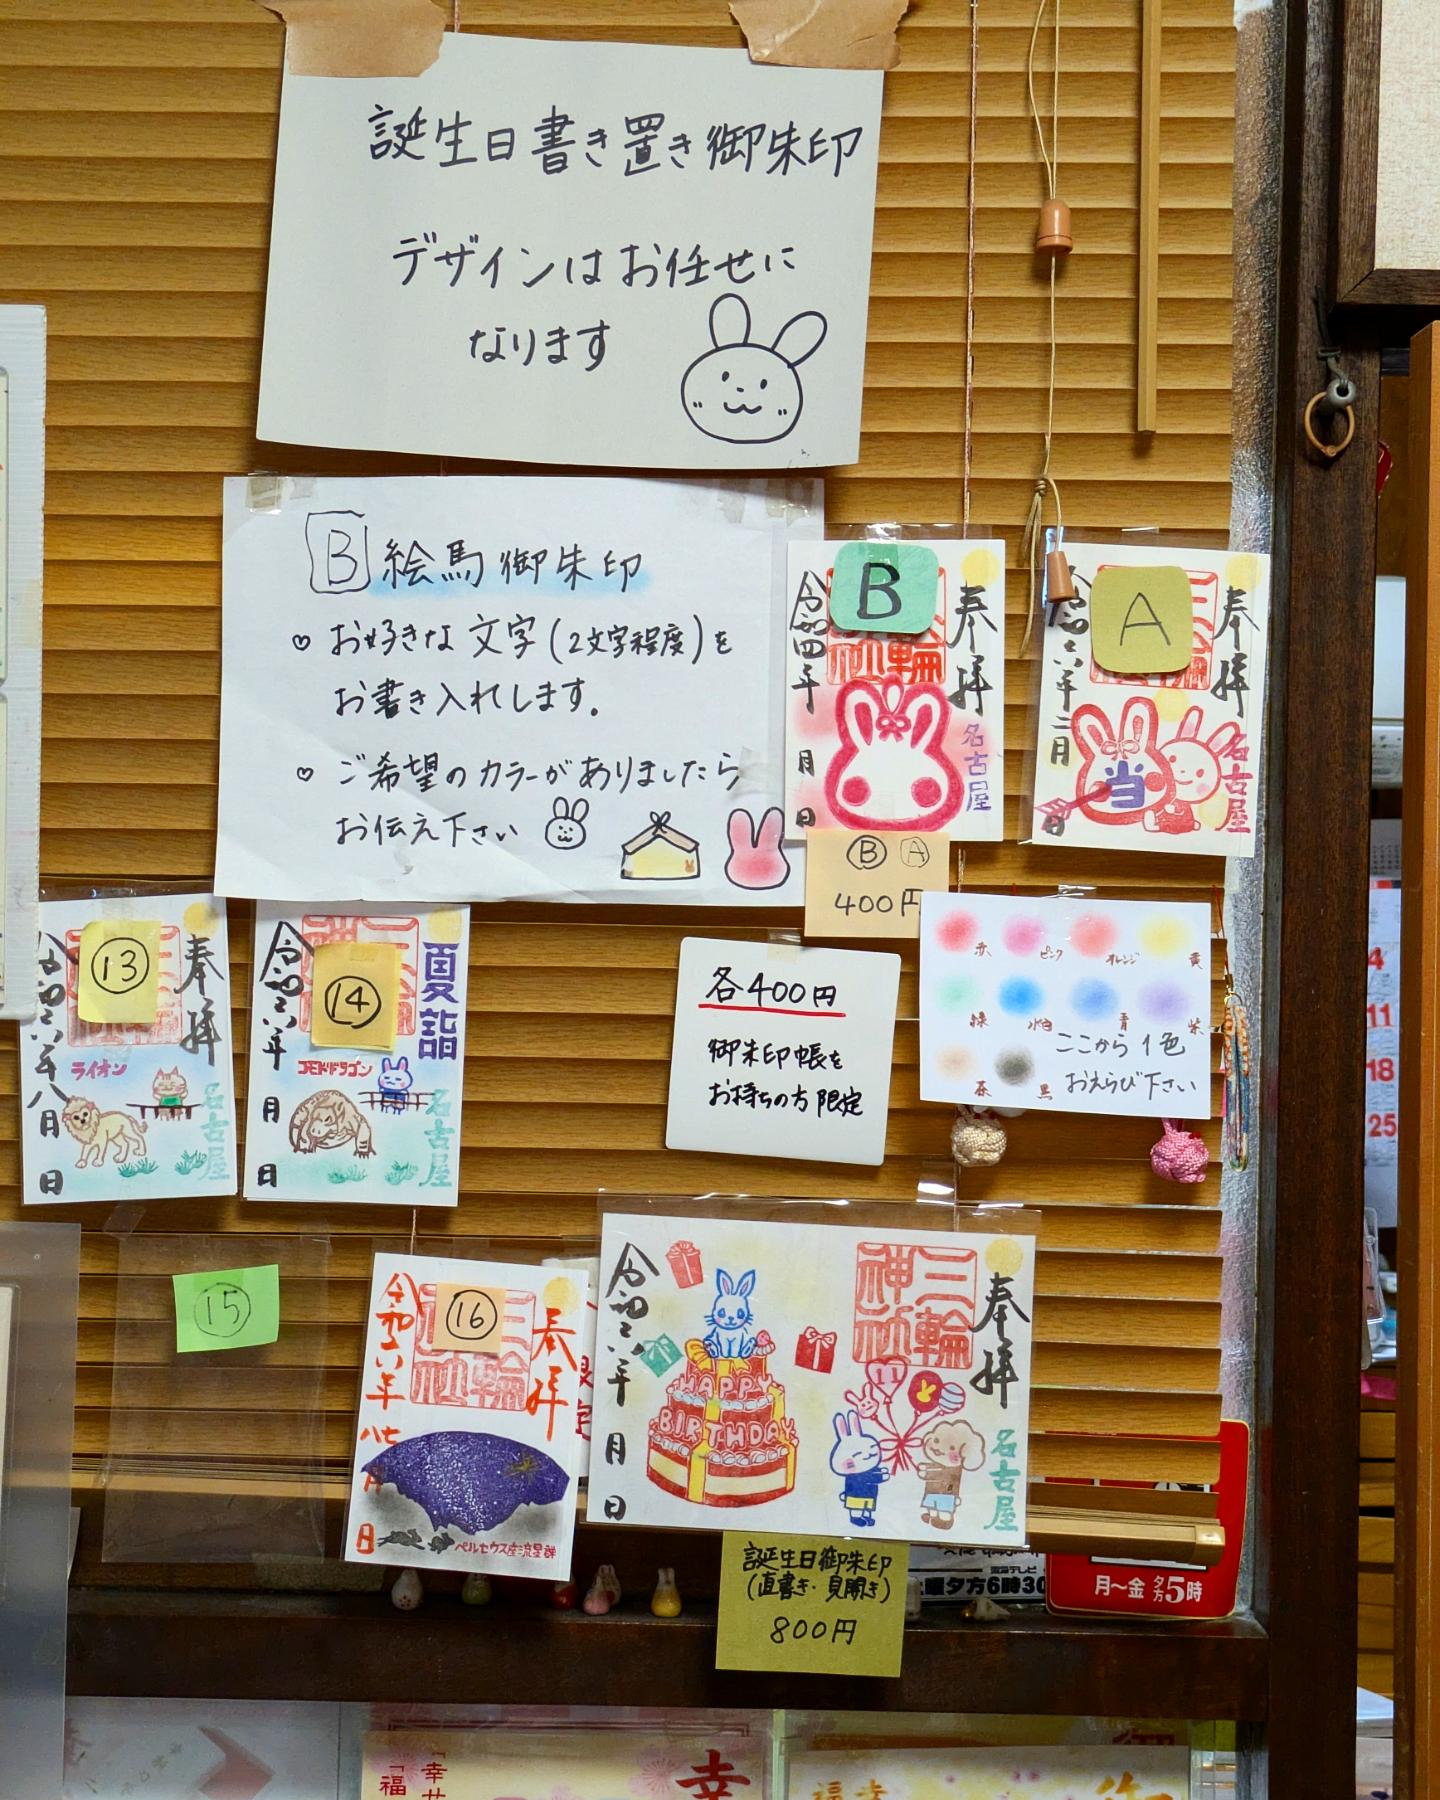 誕生日書き置き御朱印
デザインはお任せに
なります
B 絵馬御朱印
♡ お好きな文字(2文字程度)を
お書き入れします。
♡ ご希望のカラーがありましたら
お伝え下さい
B
奉拝
令和四年
月
日
名古屋
A
奉拝
令和六年二月
日
当
名古屋
Ⓑ Ⓐ
400円
⑬
奉拝
令和六年八月
日
ライオン
名古屋
⑭
夏詣
令和六年
月
日
コモドドラゴン
名古屋
各400円
御朱印帳を
お持ちの方限定
赤 ピンク オレンジ 黄
緑 水色 青 紫
茶 黒
ここから1色
おえらび下さい
⑮
⑯
奉拝
令和六年
八月
日
三輪神社
ペルセウス座流星群
奉拝
三輪神社
令和六年
月
日
HAPPY
BIRTHDAY
11
名古屋
誕生日御朱印
(直書き・見開き)
800円
土曜夕方6時30
月〜金 夕方5時
4
11
18
25
「幸せ
「福
幸
福幸